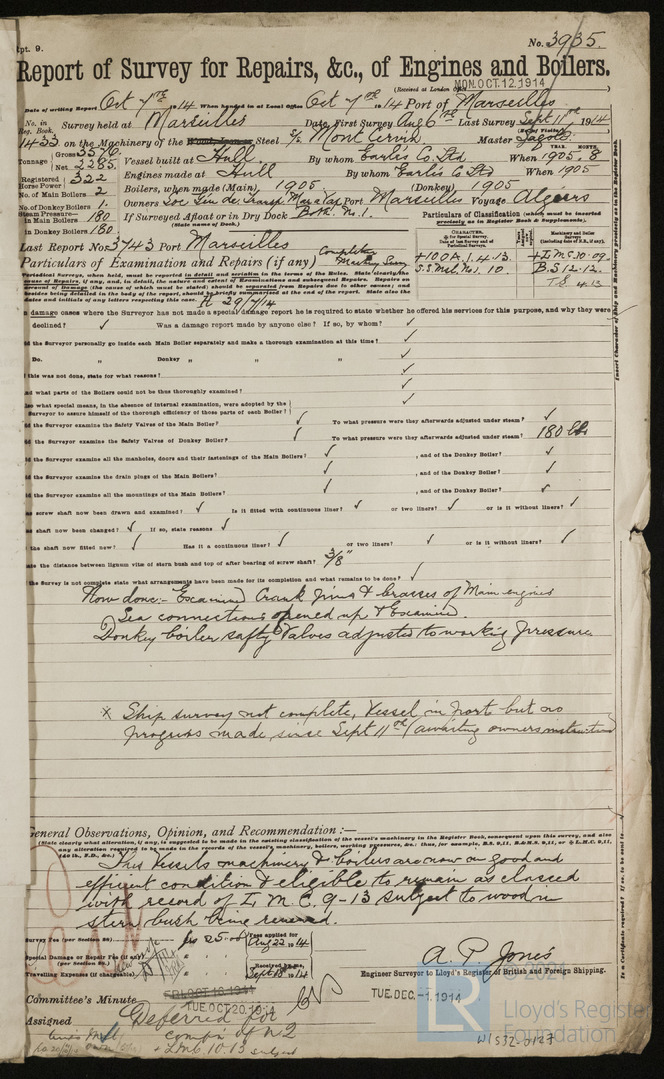 Rpt. 9.
No. 3935.
Report of Survey for Repairs, &c., of Engines and Boilers.
(Received at London Office MON. OCT. 12 1914)
Date of writing Report Oct 7th 1914 When handed in at Local Office Oct 7th 1914 Port of Marseilles
No. in Reg. Book. Survey held at Marseilles Date, First Survey Aug 6th Last Survey Sept 11th 1914
1433 on the Machinery of the Wood, Steel S/S Mont Cervin Master
Tonnage Gross 3576 Net 2285 Vessel built at Hull By whom Earle's Co. Ltd When 1905. 8
Registered Horse Power 322 Engines made at Hull By whom Earle's Co Ltd When 1905
No. of Main Boilers 2 Boilers, when made (Main) 1905 (Donkey) 1905
No. of Donkey Boilers 1. Owners Soc Gen de Transp Mar a Vap Port Marseilles Voyage Algiers
Steam Pressure— in Main Boilers 180 If Surveyed Afloat or in Dry Dock Both. No. 1.
(State name of Dock.)
in Donkey Boilers 180
Particulars of Classification (which must be inserted previously as in Register Book & Supplements).
Last Report No. 3743 Port Marseilles
Particulars of Examination and Repairs (if any)
+100A.1.4.13. +L.M.C.10.09.
S.S. Mrl. No. 1. 10. B.S 12.12.
T.S 4.13
29/7/14
In damage cases where the Surveyor has not made a special damage report he is required to state whether he offered his services for this purpose, and why they were
declined? ✓ Was a damage report made by anyone else? If so, by whom? ✓
Did the Surveyor personally go inside each Main Boiler separately and make a thorough examination at this time? ✓
Do. „ Donkey „ „ „ ✓
If this was not done, state for what reasons? ✓
And what parts of the Boilers could not be thus thoroughly examined? ✓
Also what special means, in the absence of internal examination, were adopted by the
Surveyor to assure himself of the thorough efficiency of those parts of each Boiler? ✓
Did the Surveyor examine the Safety Valves of the Main Boiler? ✓ To what pressure were they afterwards adjusted under steam? ✓
Did the Surveyor examine the Safety Valves of Donkey Boiler? ✓ To what pressure were they afterwards adjusted under steam? 180 lbs
Did the Surveyor examine all the manholes, doors and their fastenings of the Main Boilers? ✓ , and of the Donkey Boiler? ✓
Did the Surveyor examine the drain plugs of the Main Boilers? ✓ , and of the Donkey Boiler? ✓
Did the Surveyor examine all the mountings of the Main Boilers? ✓ , and of the Donkey Boiler? ✓
Has screw shaft now been drawn and examined? ✓ Is it fitted with continuous liner? ✓ or two liners? ✓ or is it without liners? ✓
Has shaft now been changed? ✓ If so, state reasons ✓
Is the shaft now fitted new? ✓ Has it a continuous liner? ✓ or two liners? ✓ or is it without liners? ✓
State the distance between lignum vitæ of stern bush and top of after bearing of screw shaft? 3/8"
If the Survey is not complete state what arrangements have been made for its completion and what remains to be done? ✓
Now done:- Examined Crank pins & brasses of Main engines
Sea connections opened up & Examined.
Donkey boiler safty Valves adjusted to working pressure
× Ship survey not complete, Vessel in port but no
progress made since Sept 11th (awaiting owners instructions
General Observations, Opinion, and Recommendation:—
(State clearly what alteration, if any, is suggested to be made in the existing classification of the vessel's machinery in the Register Book, consequent upon this survey, and also
any alteration required to be made in the records of the vessel's machinery, boilers, working pressures, &c.; thus, for example, B.S. 9,11, B.&M.S. 9,11, or ✠ L.M.C. 9,11,
140 lb., F.D., &c.)
This Vessels machinery & boilers are now in good and
efficient condition & eligible to remain as classed
with record of L M C 9-13 subject to wood in
stern bush being renewed.
Survey Fee (per Section 28) frs 25.00 Fees applied for Aug 22 1914
Special Damage or Repair Fee (if any) (per Section 28.)
Travelling Expenses (if chargeable) Received by me, Sept 18 1914
A. P. Jones
Engineer Surveyor to Lloyd's Register of British and Foreign Shipping.
Committee's Minute FRI. OCT. 16 1914 TUE. OCT. 20 1914 TUE. DEC. -1. 1914
Assigned Deferred for
compn of No 2
+ LMC 10.13 subject
© 2021
LR Lloyd's Register Foundation
W1532-0127